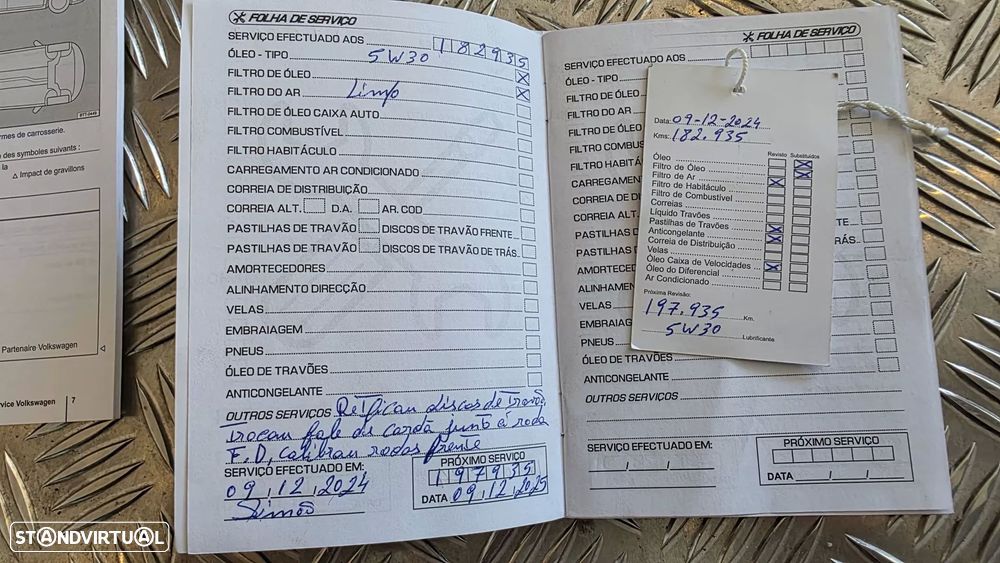 BTT-0449
rmes de carrosserie.
n des symboles suivants :
la
△ Impact de gravillons
Partenaire Volkswagen
rvice Volkswagen 7
FOLHA DE SERVIÇO
SERVIÇO EFECTUADO AOS 182935
ÓLEO - TIPO 5W30 X
FILTRO DE ÓLEO X
FILTRO DO AR Limpo
FILTRO DE ÓLEO CAIXA AUTO
FILTRO COMBUSTÍVEL
FILTRO HABITÁCULO
CARREGAMENTO AR CONDICIONADO
CORREIA DE DISTRIBUIÇÃO
CORREIA ALT. D.A. AR. COD
PASTILHAS DE TRAVÃO DISCOS DE TRAVÃO FRENTE
PASTILHAS DE TRAVÃO DISCOS DE TRAVÃO DE TRÁS
AMORTECEDORES
ALINHAMENTO DIRECÇÃO
VELAS
EMBRAIAGEM
PNEUS
ÓLEO DE TRAVÕES
ANTICONGELANTE
OUTROS SERVIÇOS Retificam discos de travão
trocam fole de cardã junto á roda
F.D, calibram rodas frente
SERVIÇO EFECTUADO EM:
09,12,2024
Simão
PRÓXIMO SERVIÇO
197935
DATA 09,12,2025
FOLHA DE SERVIÇO
SERVIÇO EFECTUADO AOS
ÓLEO - TIPO
FILTRO DE ÓLEO
FILTRO DO AR
FILTRO DE ÓLEO
FILTRO COMBUS
FILTRO HABITÁ
CARREGAMENT
CORREIA DE DI
CORREIA ALT.
PASTILHAS D
PASTILHAS D
TRÁS
AMORTECE
ALINHAMEN
VELAS
EMBRAIAG
PNEUS
ÓLEO DE TRAVÕES
ANTICONGELANTE
OUTROS SERVIÇOS
SERVIÇO EFECTUADO EM:
PRÓXIMO SERVIÇO
DATA
Data: 09-12-2024
Kms: 182.935
Revisto Substituídos
Óleo X
Filtro de Óleo X
Filtro de Ar X
Filtro de Habitáculo
Filtro de Combustível
Correias
Líquido Travões
Pastilhas de Travões X
Anticongelante X
Correia de Distribuição
Velas
Óleo Caixa de Velocidades X
Óleo do Diferencial
Ar Condicionado
Próxima Revisão:
197.935 Km.
5W30 Lubrificante
STANDVIRTUAL